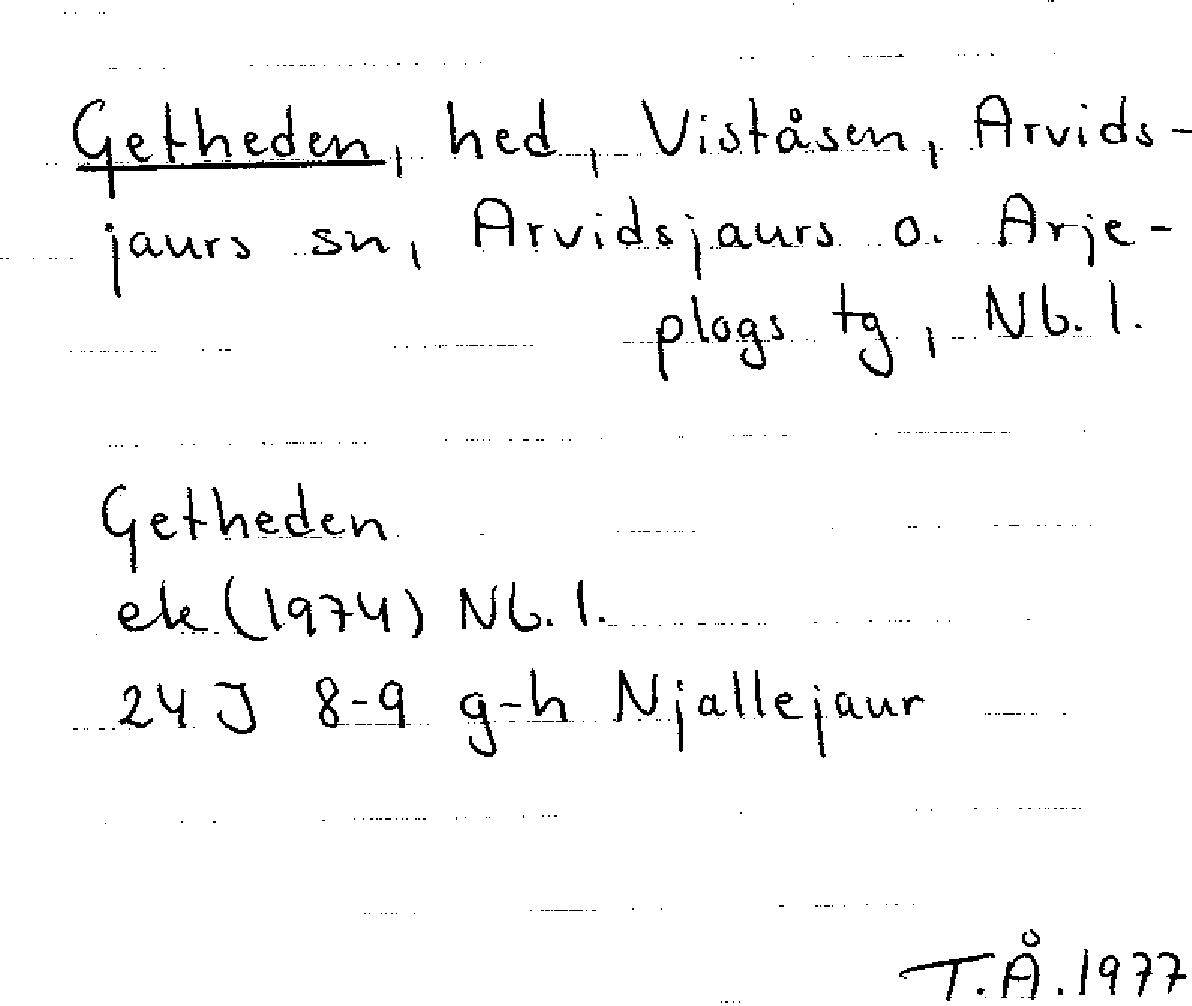 Getheden, hed, Viståsen, Arvids-
jaurs sn, Arvidsjaurs o. Arje-
plogs tg, Nb. l.
Getheden
ek (1974) Nb. l.
24 J 8-9 g-h Njallejaur
T.Å. 1977